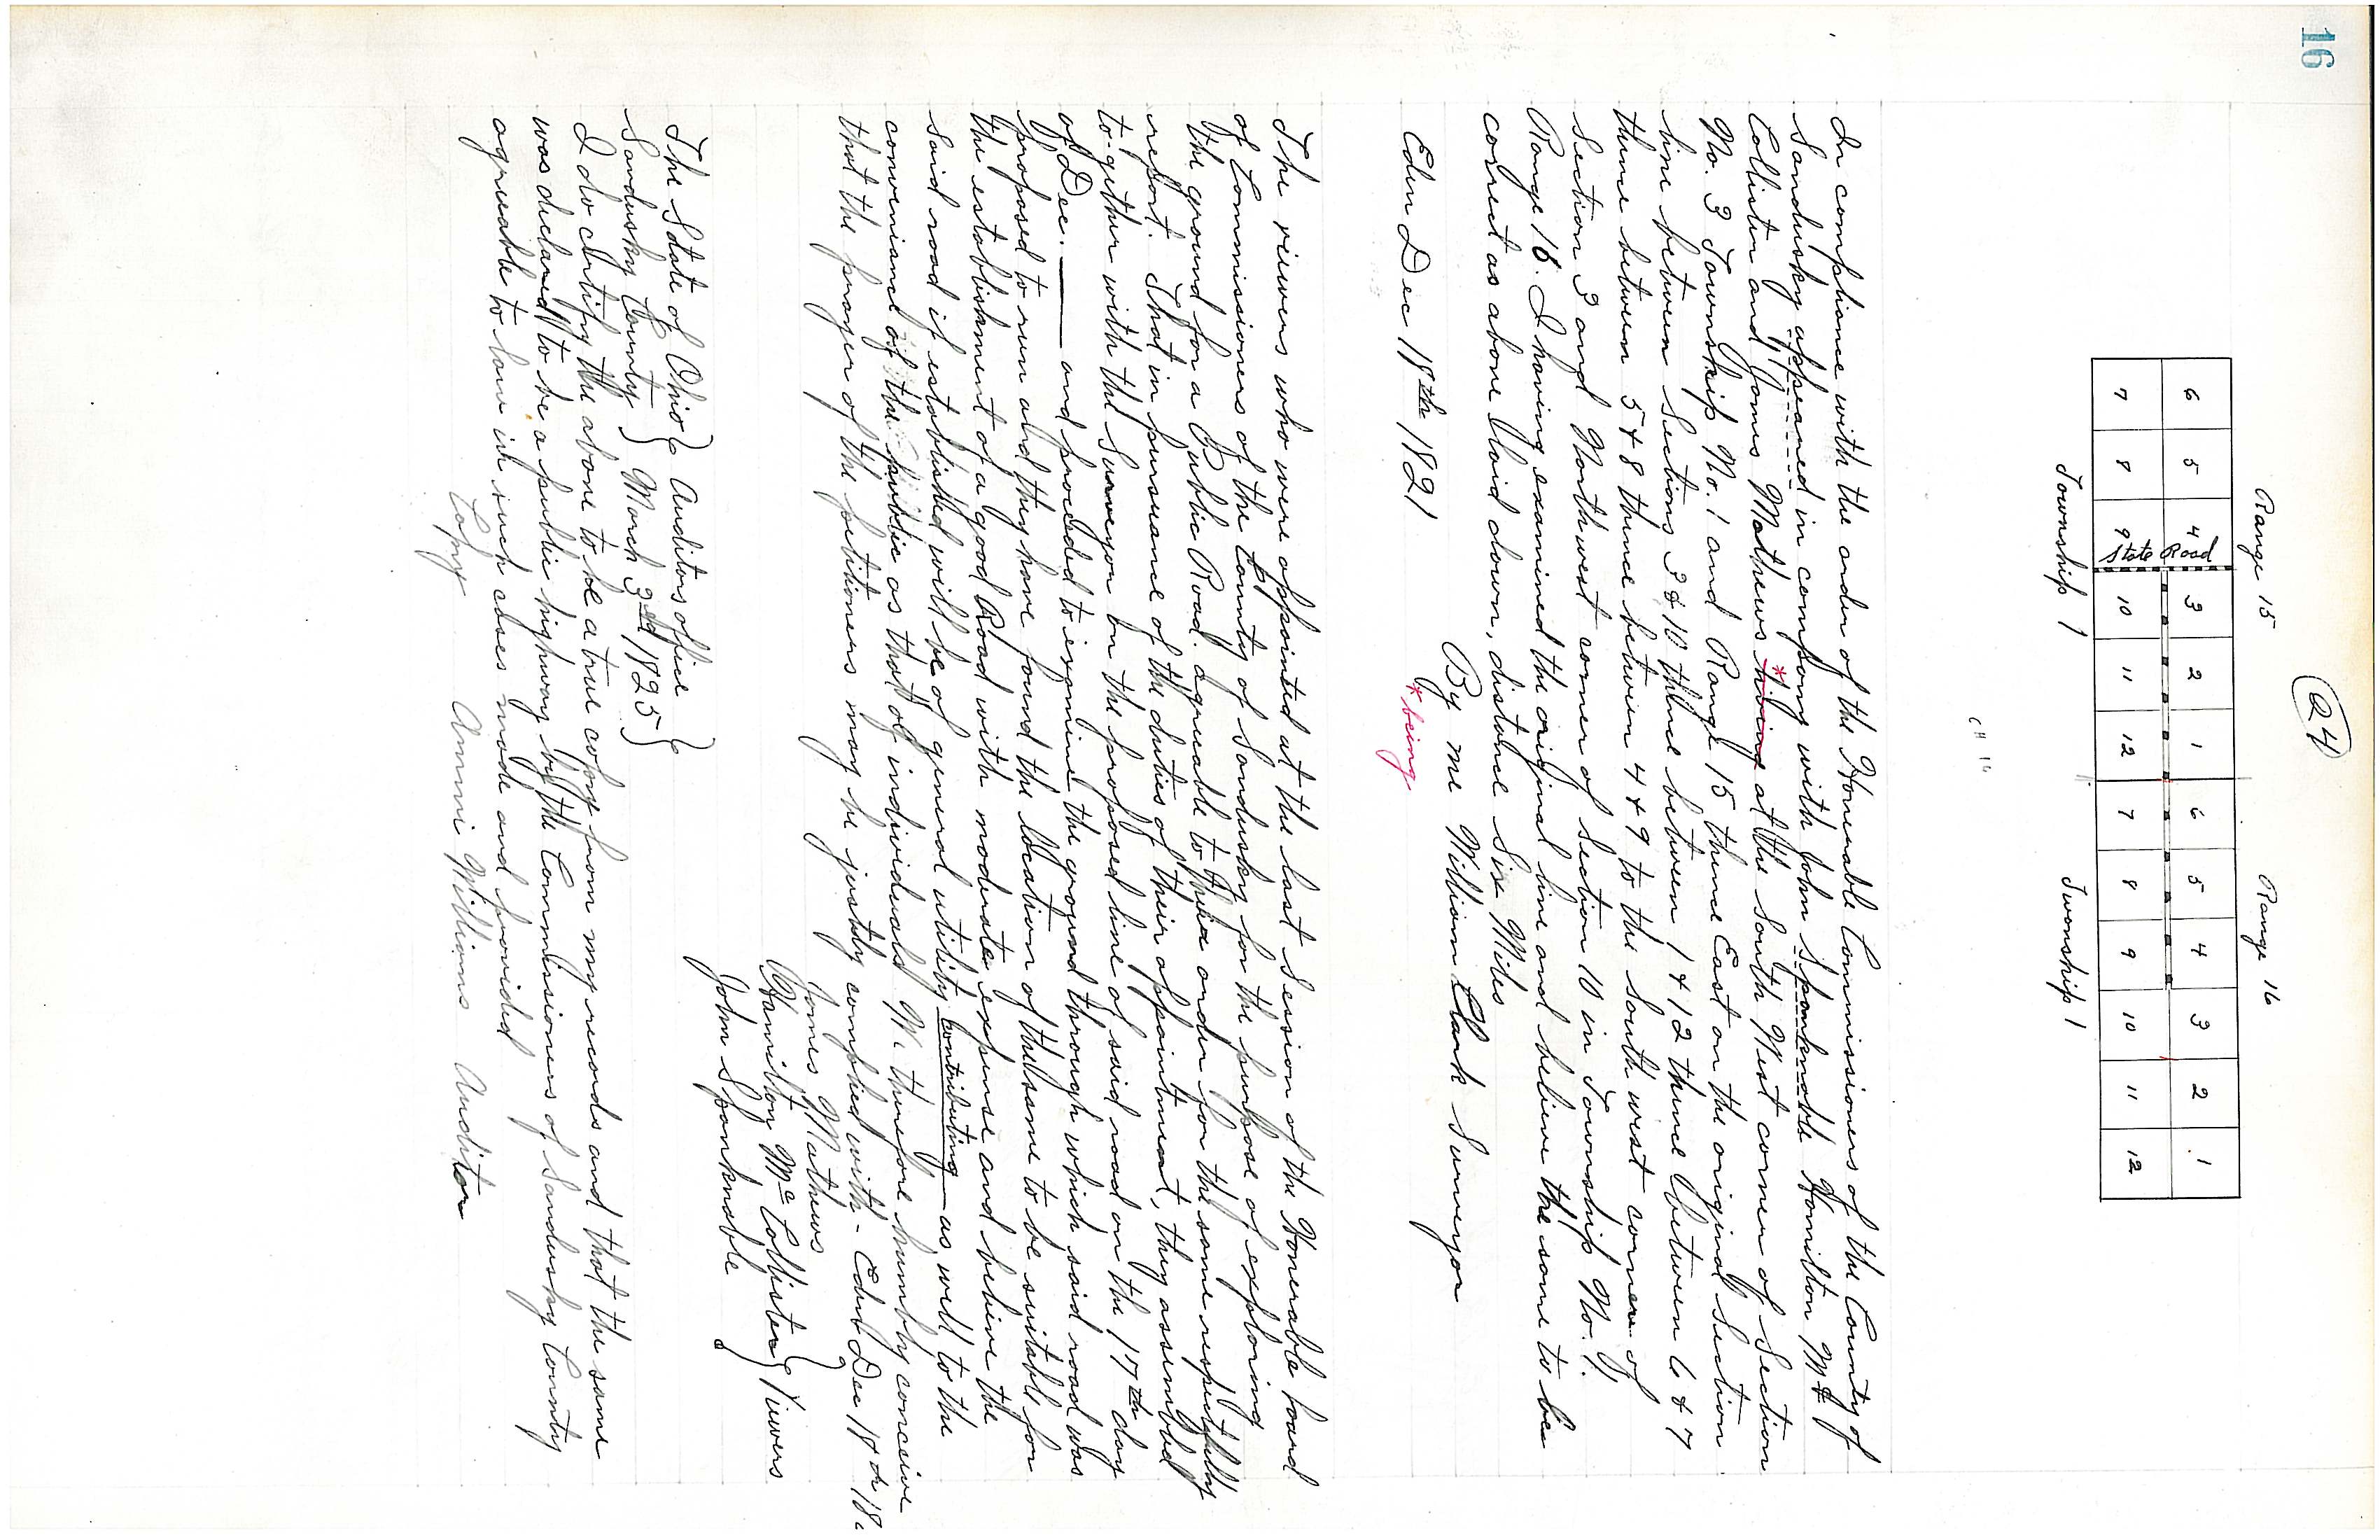 16
Q 4
Range 15 Range 16
6 5 4 3 2 1 6 5 4 3 2 1
State Road
7 8 9 10 11 12 7 8 9 10 11 12
Township 1 Twonship 1
In compliance with the order of the Honerable Commissioners of the County of
Sandusky appeared in company with John Sponknoble Hamilton Mc
Collister and James Mathews *having at the South West corner of Section
No. 3 Township No. 1 and Range 15 thence East on the original Section
line between Sections 3 & 10 thence between 1 & 12 thence between 6 & 7
thence between 5 & 8 thence between 4 & 9 to the South west corner of
Section 3 and Northwest corner of Section 10 in Township No. 1,
Range 16. I having examined the original line and believe the same to be
correct as above laid down, distance Six Miles
By me William Clark Surveyor
Eden Dec 18th 1821
*being
The viewers who were appointed at the last Session of the Honerable board
of Commissioners of the County of Sandusky for the purpose of exploring
the ground for a Public Road. agreeable to their order for the same respectfully
report. That in pursuance of the duties of their appointment, they assembled
to-gether with the Surveyor on the proposed line of said road on the 17th day
of Dec. — and proceeded to examine the ground through which said road was
proposed to run and they have found the location of the same to be suitable for
the establishment of a good Road with moderate expense and believe the
said road if established will be of general utility contributing — as well to the
convenience of the public as that of individuals We therefore humbly conceive
that the prayer of the petitioners may be justly complied with - Eden Dec 18th 18
James Mathews
Hamilton Mc Collister } Viwers
John Sponknoble
The State of Ohio } Auditors office }
Sandusky County } March 3rd 1825 }
I do certify the above to be a true copy from my records and that the same
was declared to be a public highway by the Commissioners of Sandusky County
agreeable to law in such cases made and provided
Copy Ammi Williams Auditor